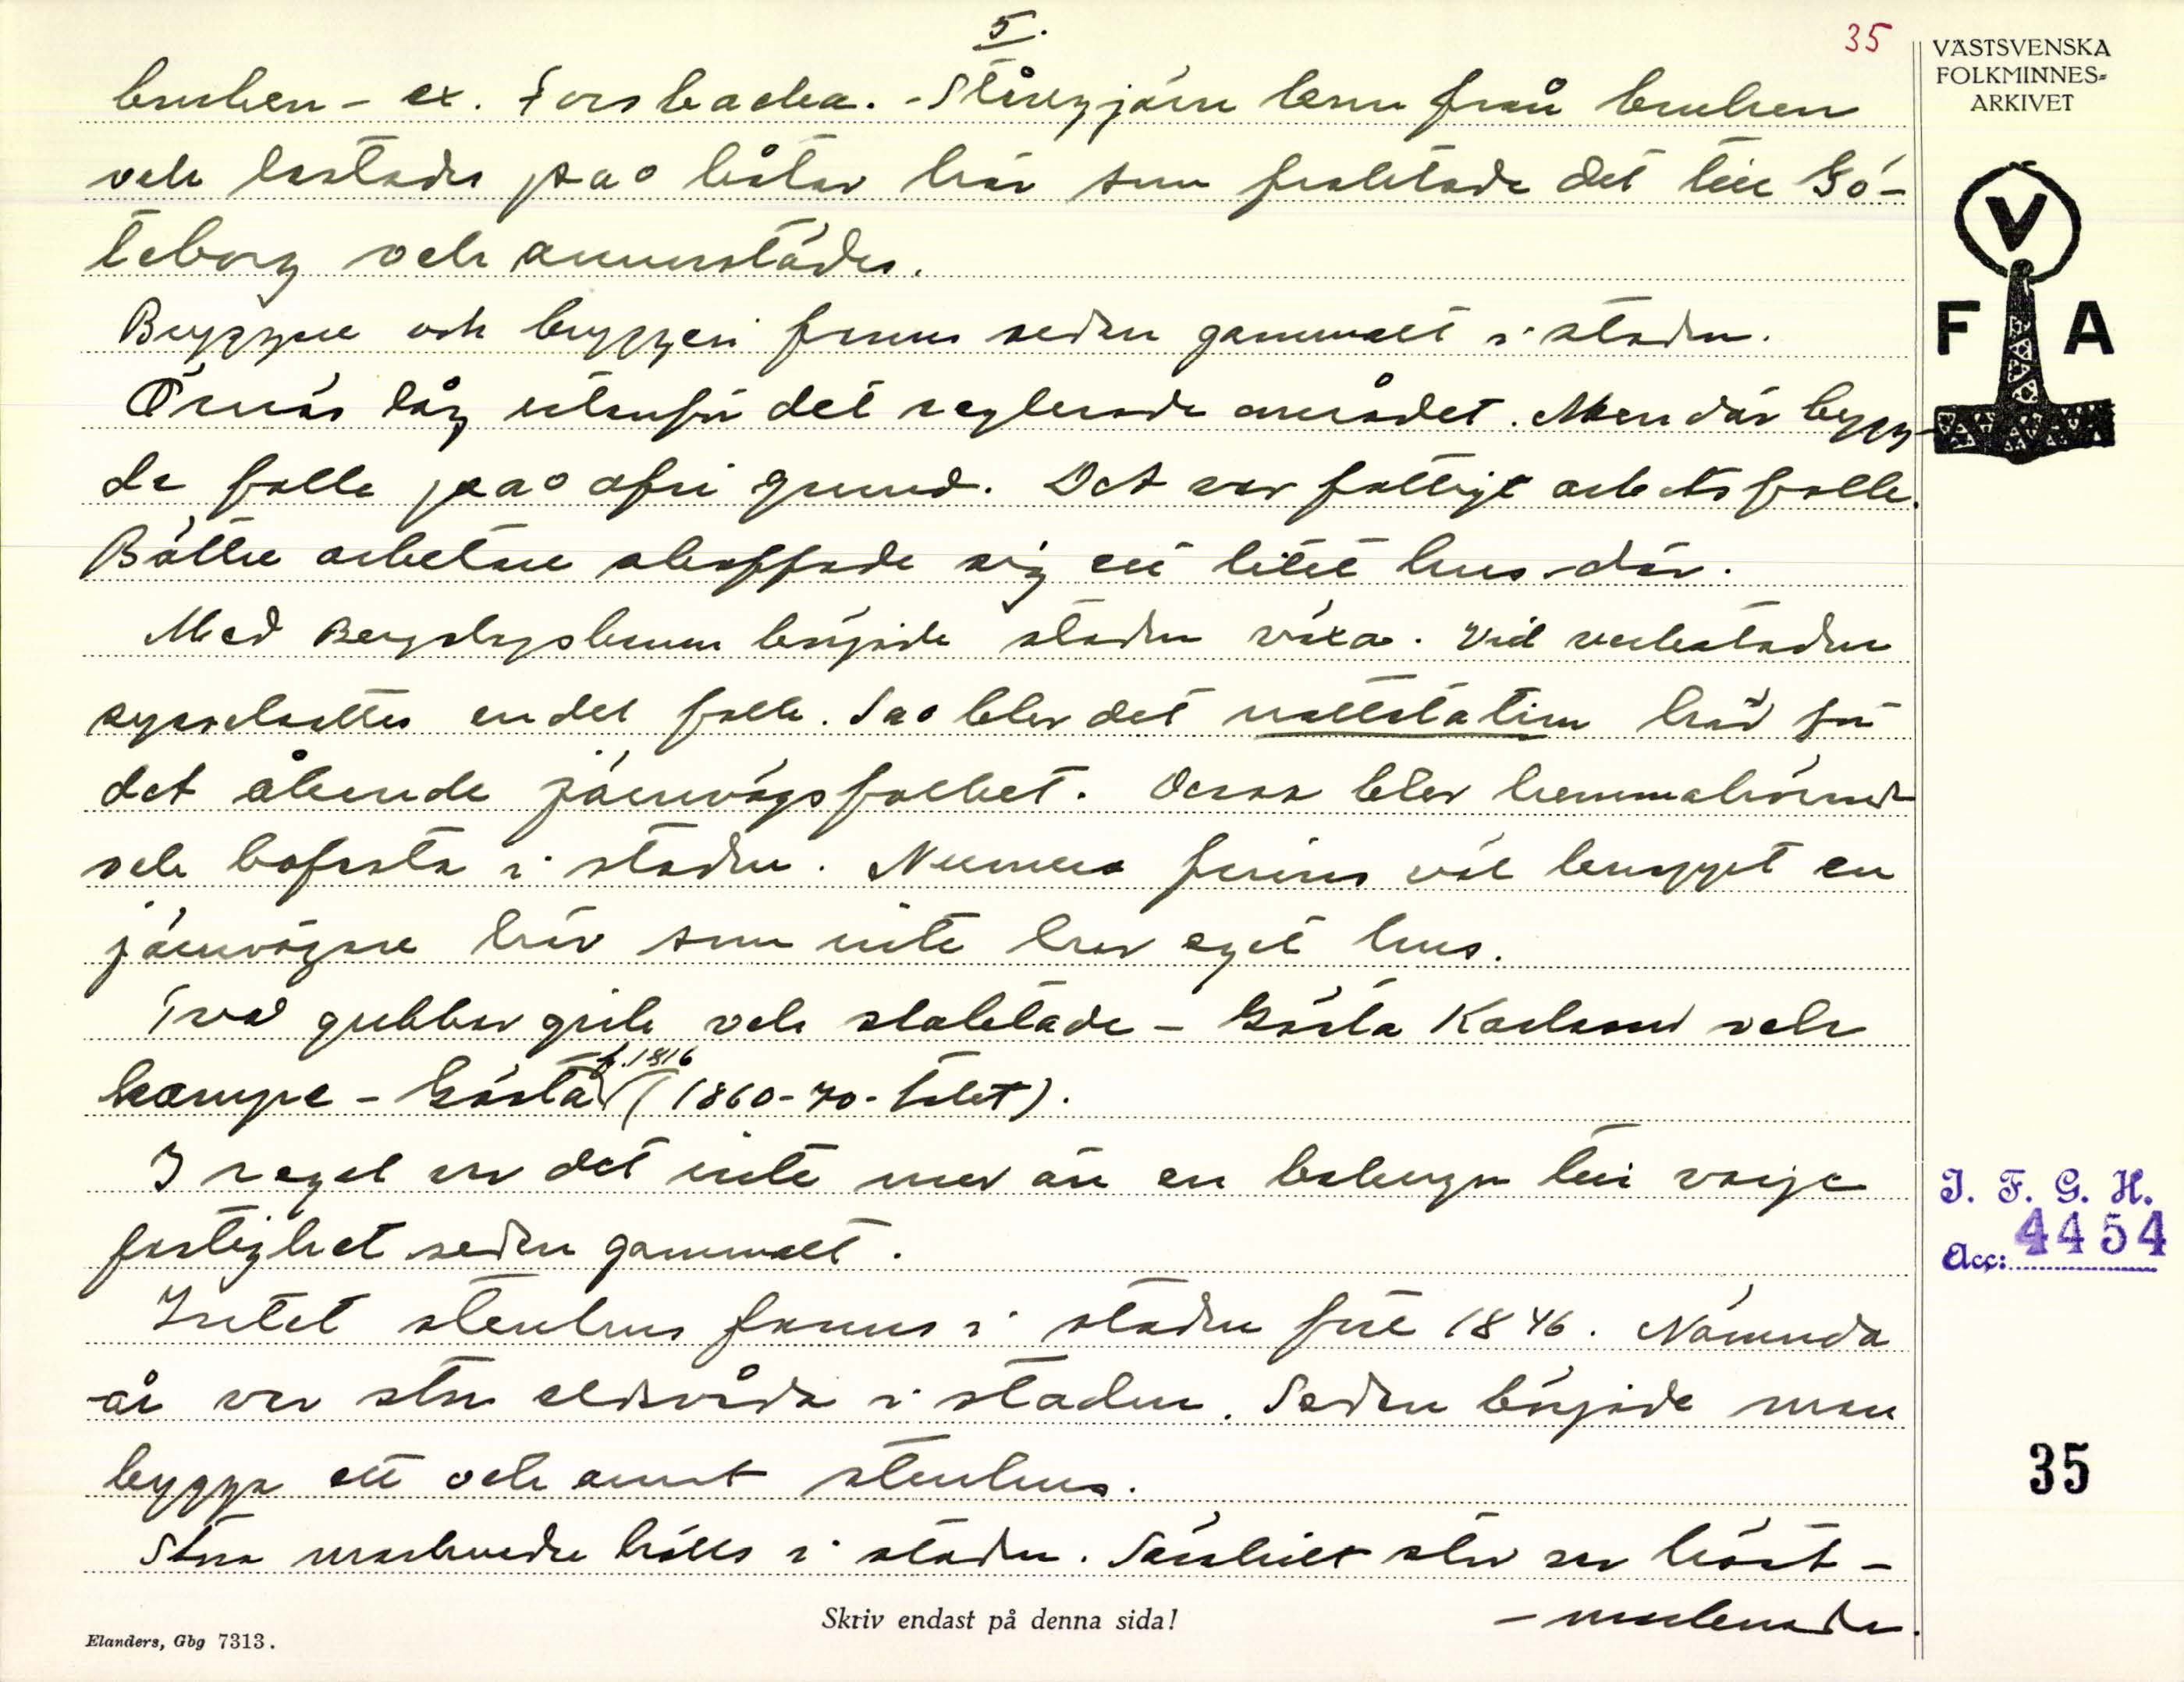 5.
35
VÄSTSVENSKA
FOLKMINNES=
ARKIVET
bruken - ex. Forsbacka. - Stångjärn kom från bruken
och lastades på båtar här som fraktade det till Gö-
teborg och annorstädes.
V
F A
Bryggare och bryggeri fanns sedan gammalt i staden.
Örnäs låg utanför det reglerade området. Men där bygg-
de folk på ofri grund. Det var fattigt arbetsfolk.
Bättre arbetare skaffade sig ett litet hus där.
Med Bergslagsbanan började staden växa. Vid verkstaden
sysselsattes en del folk. Så blev det nattstation här för
det åkande järnvägsfolket. Dessa blev hemmahörande
och bofasta i staden. Numera finns väl knappt en
järnvägare här som inte har eget hus.
Två gubbar gick och stabbade - Gösta Karlsson och
kampe - Gösta f. 1816 (1860-70-talet).
I regel var det inte mer än en byggnad till varje
fastighet sedan gammalt.
J. F. G. H.
Acc: 4454
Intet stenhus fanns i staden före 1846. Nämnda
år var stor eldsvåda i staden. Sedan började man
bygga ett och annat stenhus.
35
Stora marknader hölls i staden. Särskilt stor var höst-
- marknaden.
Skriv endast på denna sida!
Elanders, Gbg 7313.